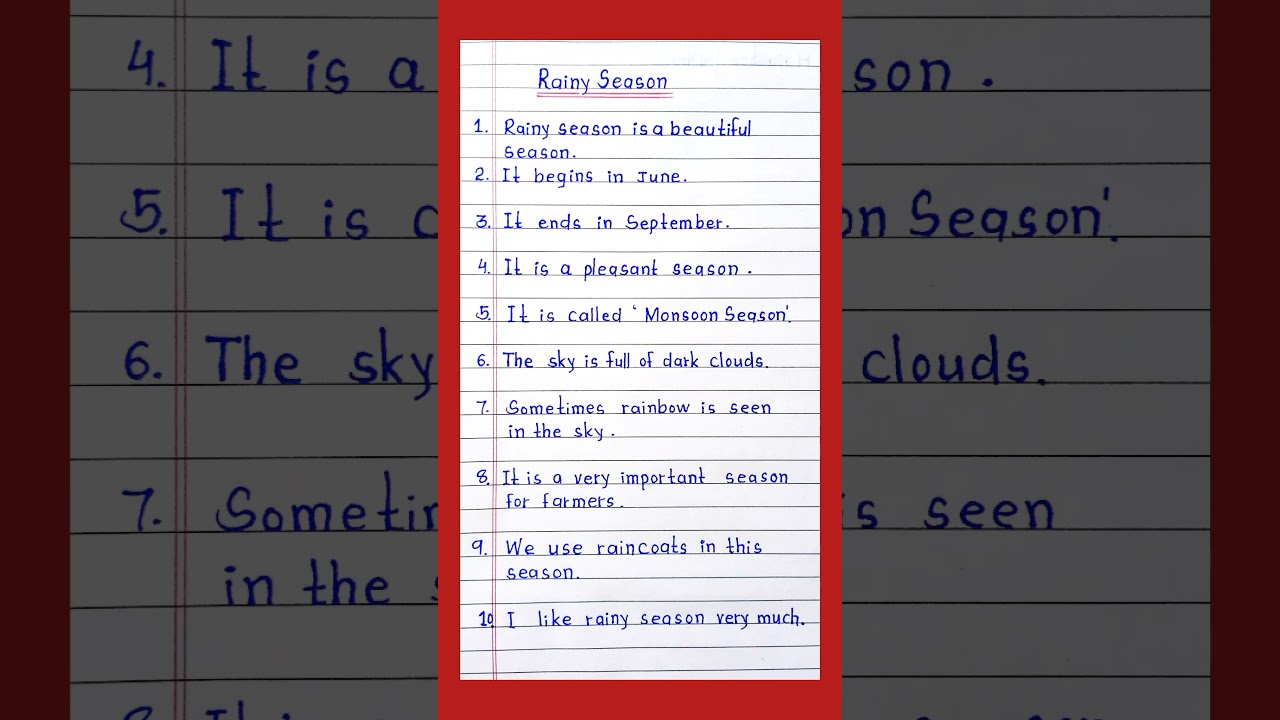 Rainy Season
1. Rainy season is a beautiful
season.
2. It begins in June.
3. It ends in September.
4. It is a pleasant season.
5. It is called 'Monsoon Season'.
6. The sky is full of dark clouds.
7. Sometimes rainbow is seen
in the sky.
8. It is a very important season
for farmers.
9. We use raincoats in this
season.
10. I like rainy season very much.
4. It is a
son.
5. It is
on Season'.
6. The sky
clouds.
7.
seen
in the